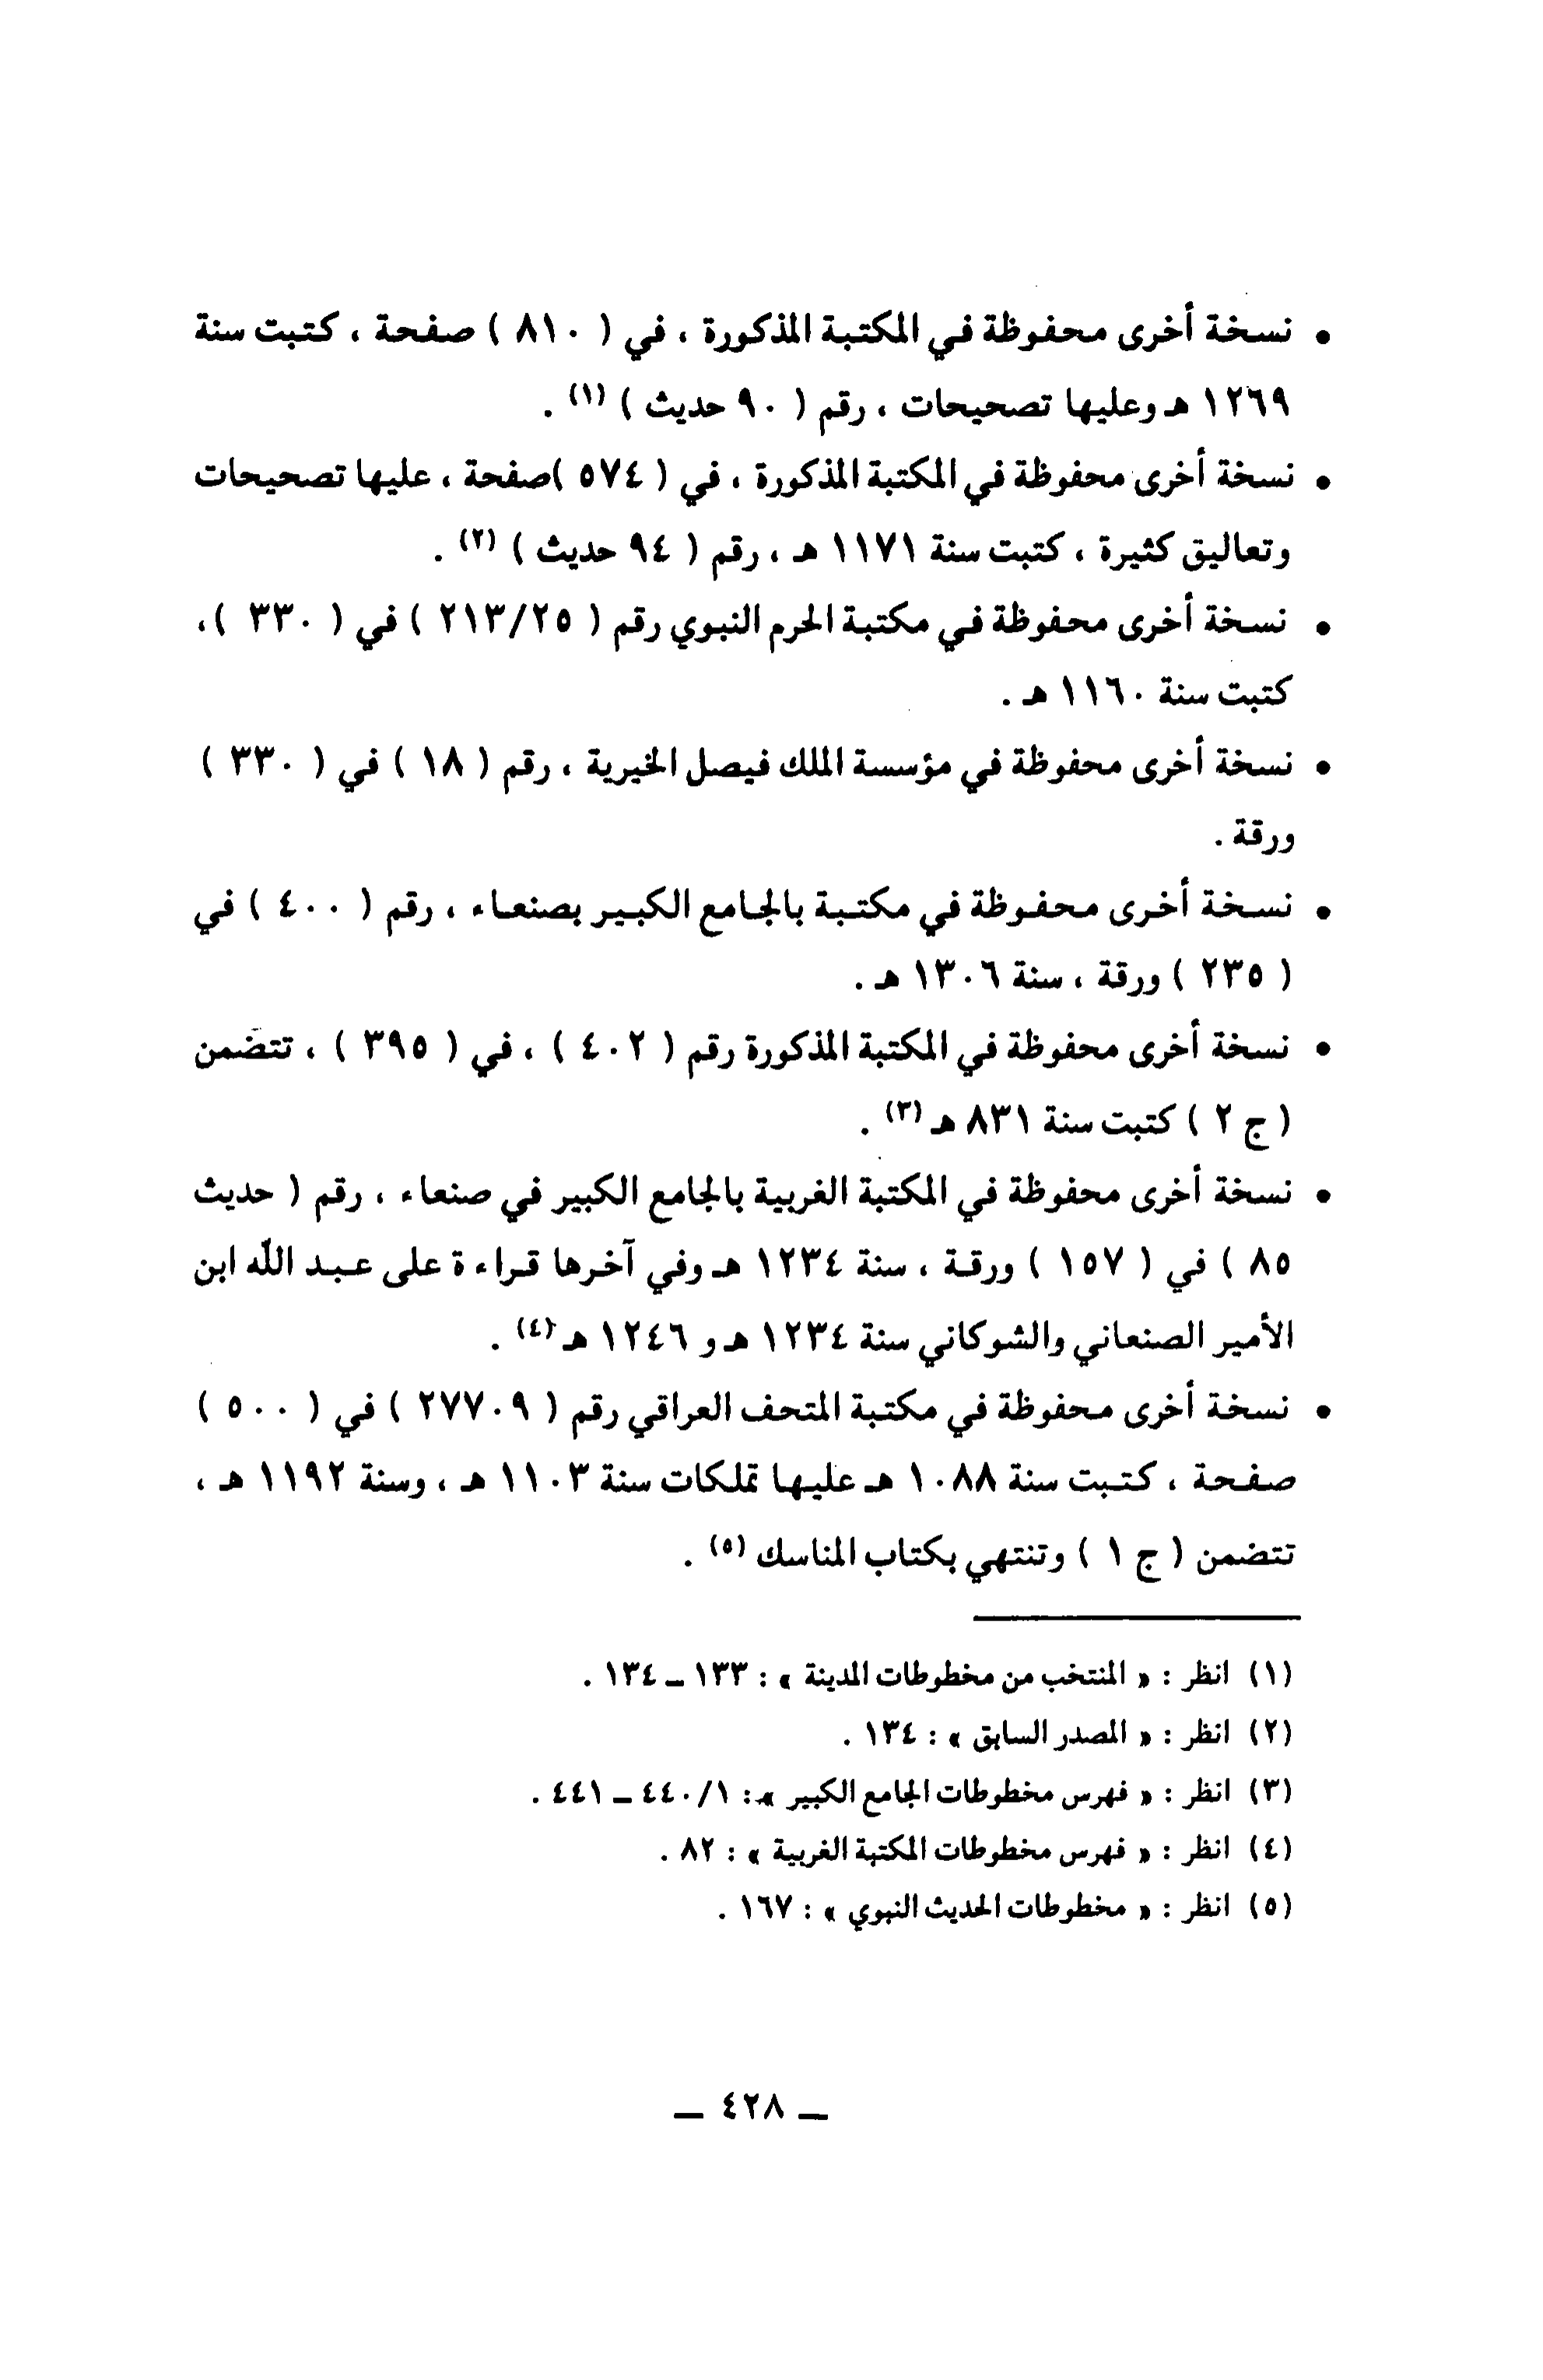 • نسخة أخرى محفوظة في المكتبة المذكورة ، في ( ٨١٠ ) صفحة ، كتبت سنة
١٢٦٩ هـ وعليها تصحيحات ، رقم ( ٩٠ حديث ) (١) .
• نسخة أخرى محفوظة في المكتبة المذكورة ، في ( ٥٧٤ )صفحة ، عليها تصحيحات
وتعاليق كثيرة ، كتبت سنة ١١٧١ هـ ، رقم ( ٩٤ حديث ) (٢) .
• نسخة أخرى محفوظة في مكتبة الحرم النبوي رقم ( ٢١٣/٢٥ ) في ( ٣٣٠ )،
كتبت سنة ١١٦٠ هـ .
• نسخة أخرى محفوظة في مؤسسة الملك فيصل الخيرية ، رقم ( ١٨ ) في ( ٣٣٠ )
ورقة .
• نسخة أخرى محفوظة في مكتبة بالجامع الكبير بصنعاء ، رقم ( ٤٠٠ ) في
( ٢٣٥ ) ورقة ، سنة ١٣٠٦ هـ .
• نسخة أخرى محفوظة في المكتبة المذكورة رقم ( ٤٠٢ ) ، في ( ٣٩٥ ) ، تتضمن
( ج ٢ ) كتبت سنة ٨٣١ هـ (٣) .
• نسخة أخرى محفوظة في المكتبة الغربية بالجامع الكبير في صنعاء ، رقم ( حديث
٨٥ ) في ( ١٥٧ ) ورقة ، سنة ١٢٣٤ هـ وفي آخرها قراءة على عبد الله ابن
الأمير الصنعاني والشوكاني سنة ١٢٣٤ هـ و ١٢٤٦ هـ (٤) .
• نسخة أخرى محفوظة في مكتبة المتحف العراقي رقم ( ٢٧٧٠٩ ) في ( ٥٠٠ )
صفحة ، كتبت سنة ١٠٨٨ هـ عليها تملكات سنة ١١٠٣ هـ ، وسنة ١١٩٢ هـ ،
تتضمن ( ج ١ ) وتنتهي بكتاب المناسك (٥) .
(١) انظر : « المنتخب من مخطوطات المدينة » : ١٣٣ ـ ١٣٤ .
(٢) انظر : « المصدر السابق » : ١٣٤ .
(٣) انظر : « فهرس مخطوطات الجامع الكبير »: ٤٤٠/١ ـ ٤٤١ .
(٤) انظر : « فهرس مخطوطات المكتبة الغربية » : ٨٢ .
(٥) انظر : « مخطوطات الحديث النبوي » : ١٦٧ .
ـ ٤٢٨ ـ